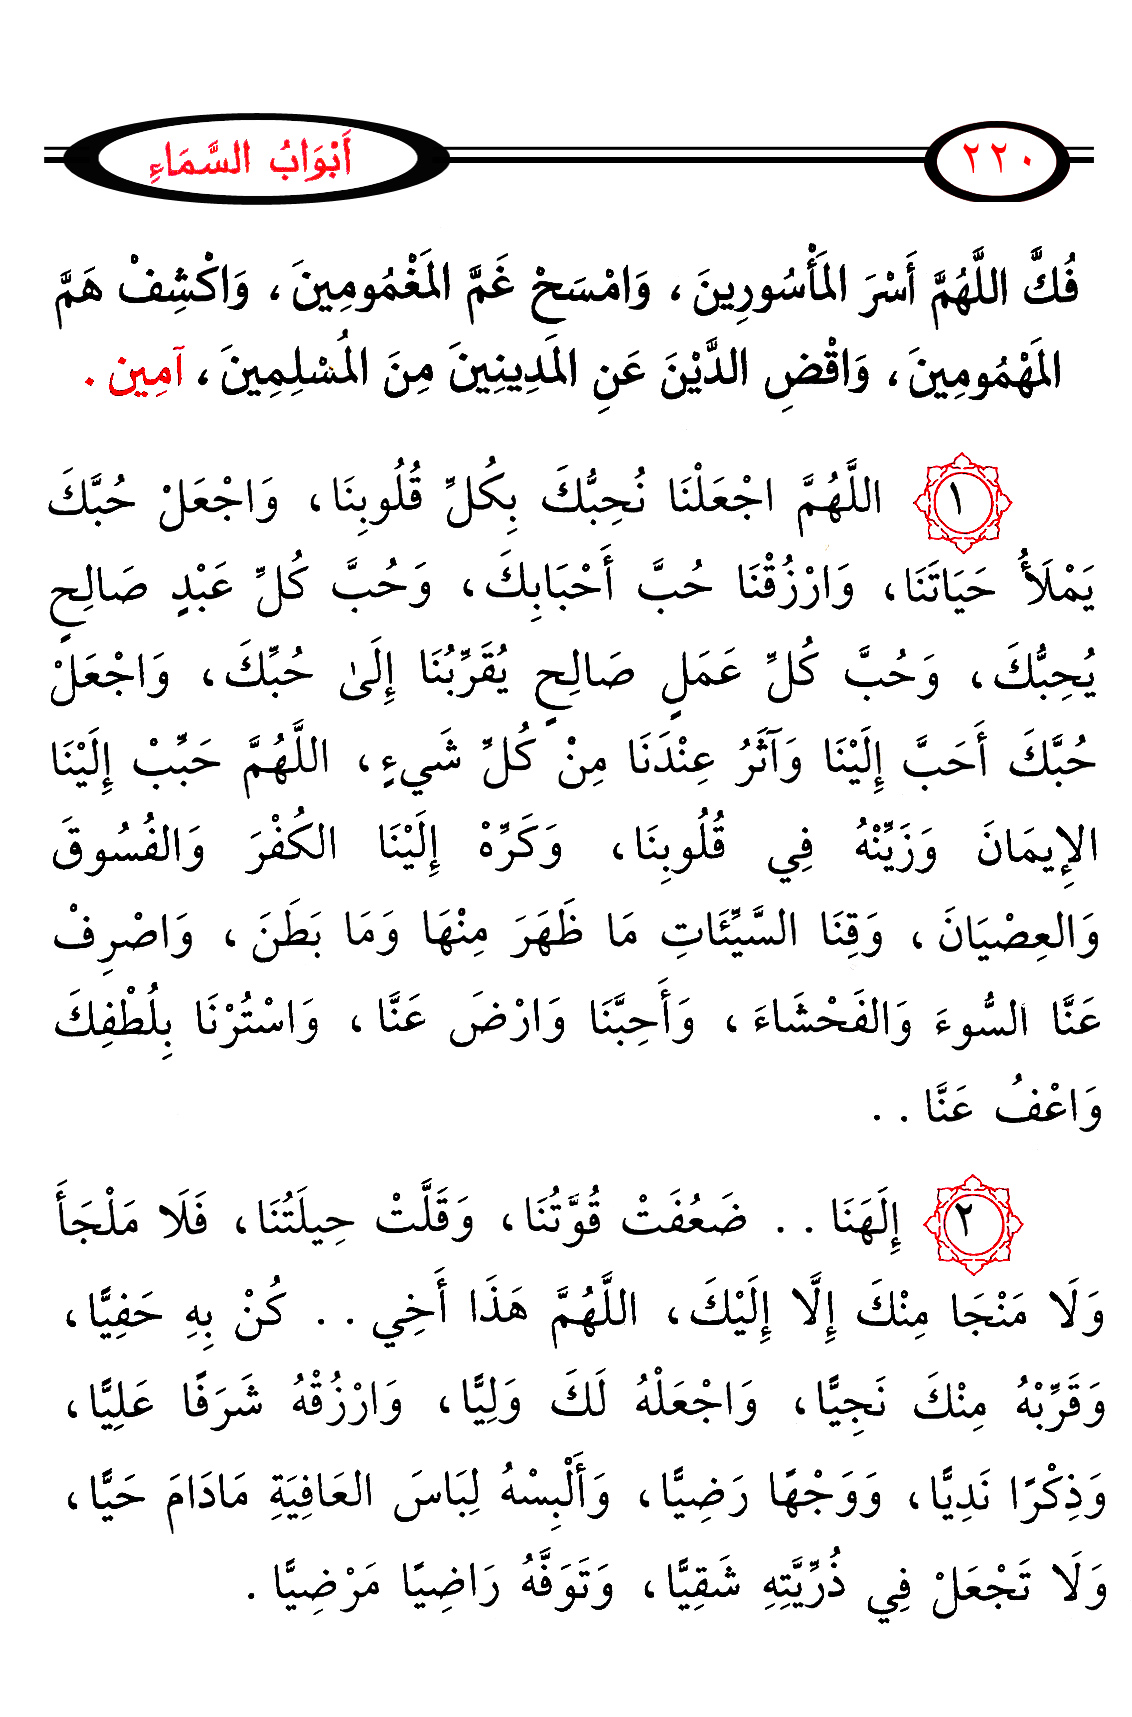 ٢٢٠
أَبْوَابُ السَّمَاءِ
فُكَّ اللَّهُمَّ أَسْرَ المَأْسُورِينَ، وَامْسَحْ غَمَّ المَغْمُومِينَ، وَاكْشِفْ هَمَّ
المَهْمُومِينَ، وَاقْضِ الدَّيْنَ عَنِ المَدِينِينَ مِنَ المُسْلِمِينَ، آمِين .
١ اللَّهُمَّ اجْعَلْنَا نُحِبُّكَ بِكُلِّ قُلُوبِنَا، وَاجْعَلْ حُبَّكَ
يَمْلَأُ حَيَاتَنَا، وَارْزُقْنَا حُبَّ أَحْبَابِكَ، وَحُبَّ كُلِّ عَبْدٍ صَالِحٍ
يُحِبُّكَ، وَحُبَّ كُلِّ عَمَلٍ صَالِحٍ يُقَرِّبُنَا إِلَىٰ حُبِّكَ، وَاجْعَلْ
حُبَّكَ أَحَبَّ إِلَيْنَا وَآثَرُ عِنْدَنَا مِنْ كُلِّ شَيءٍ، اللَّهُمَّ حَبِّبْ إِلَيْنَا
الإِيمَانَ وَزَيِّنْهُ فِي قُلُوبِنَا، وَكَرِّهْ إِلَيْنَا الكُفْرَ وَالفُسُوقَ
وَالعِصْيَانَ، وَقِنَا السَّيِّئَاتِ مَا ظَهَرَ مِنْهَا وَمَا بَطَنَ، وَاصْرِفْ
عَنَّا السُّوءَ وَالفَحْشَاءَ، وَأَحِبَّنَا وَارْضَ عَنَّا، وَاسْتُرْنَا بِلُطْفِكَ
وَاعْفُ عَنَّا . .
٢ إِلَهَنَا . . ضَعُفَتْ قُوَّتُنَا، وَقَلَّتْ حِيلَتُنَا، فَلَا مَلْجَأَ
وَلَا مَنْجَا مِنْكَ إِلَّا إِلَيْكَ، اللَّهُمَّ هَذَا أَخِي . . كُنْ بِهِ حَفِيًّا،
وَقَرِّبْهُ مِنْكَ نَجِيًّا، وَاجْعَلْهُ لَكَ وَلِيًّا، وَارْزُقْهُ شَرَفًا عَلِيًّا،
وَذِكْرًا نَدِيًّا، وَوَجْهًا رَضِيًّا، وَأَلْبِسْهُ لِبَاسَ العَافِيَةِ مَادَامَ حَيًّا،
وَلَا تَجْعَلْ فِي ذُرِّيَّتِهِ شَقِيًّا، وَتَوَفَّهُ رَاضِيًا مَرْضِيًّا .